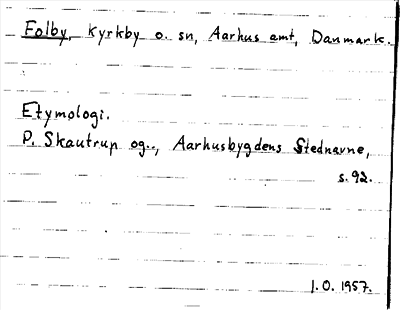 Folby, Kyrkby o. sn, Aarhus amt, Danmark.
Etymologi.
P. Skautrup og.., Aarhusbygdens Stednavne,
s. 92.
J.O. 1957.